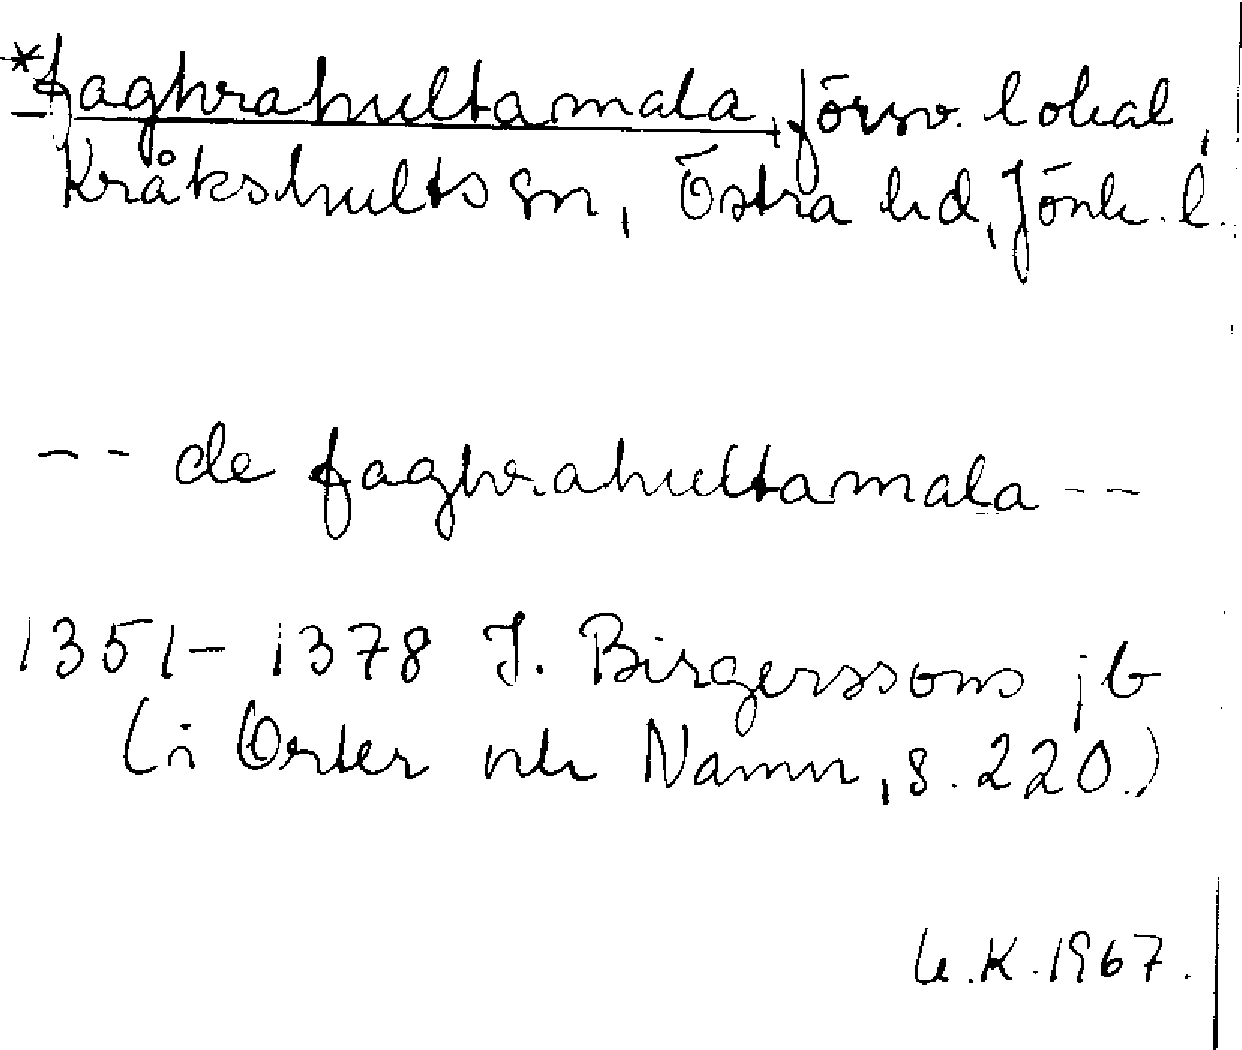 *faghrahultamala, försv. lokal,
Kråkshults sn, Östra hd, Jönk. l.
-- de faghrahultamala --
1351-1378 J. Birgerssons jb
(i Orter och Namn, s. 220.)
K. 1967.